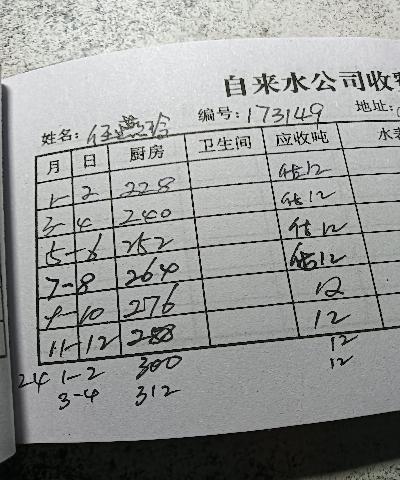 自来水公司收
姓名: 任燕玲 编号: 173149 地址:
月 日 厨房 卫生间 应收吨 水
1-2 228 估12
3-4 240 估12
5-6 252 估12
7-8 264 估12
9-10 276 12
11-12 288 12
24 1-2 300 12
3-4 312 12